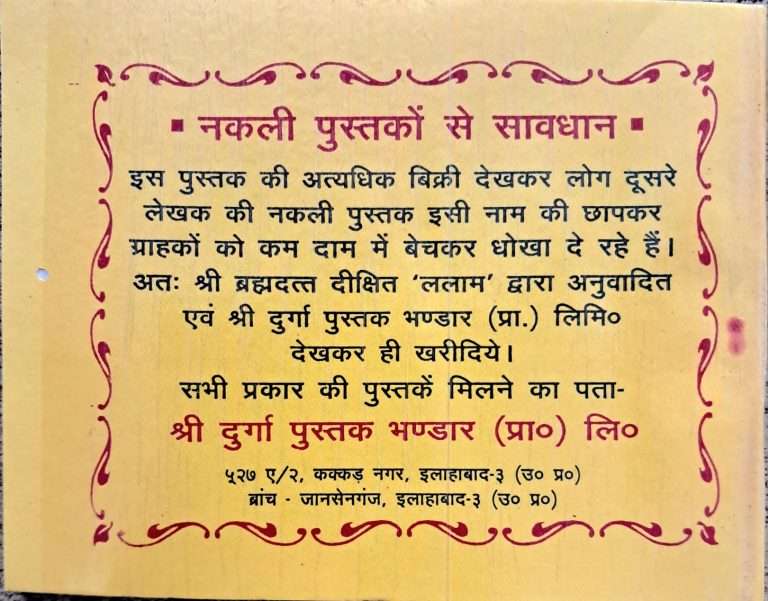 ▪ नकली पुस्तकों से सावधान ▪
इस पुस्तक की अत्यधिक बिक्री देखकर लोग दूसरे
लेखक की नकली पुस्तक इसी नाम की छापकर
ग्राहकों को कम दाम में बेचकर धोखा दे रहे हैं।
अतः श्री ब्रह्मदत्त दीक्षित ‘ललाम’ द्वारा अनुवादित
एवं श्री दुर्गा पुस्तक भण्डार (प्रा.) लिमि०
देखकर ही खरीदिये।
सभी प्रकार की पुस्तकें मिलने का पता-
श्री दुर्गा पुस्तक भण्डार (प्रा०) लि०
५२७ ए/२, कक्कड़ नगर, इलाहाबाद-३ (उ० प्र०)
ब्रांच - जानसेनगंज, इलाहाबाद-३ (उ० प्र०)